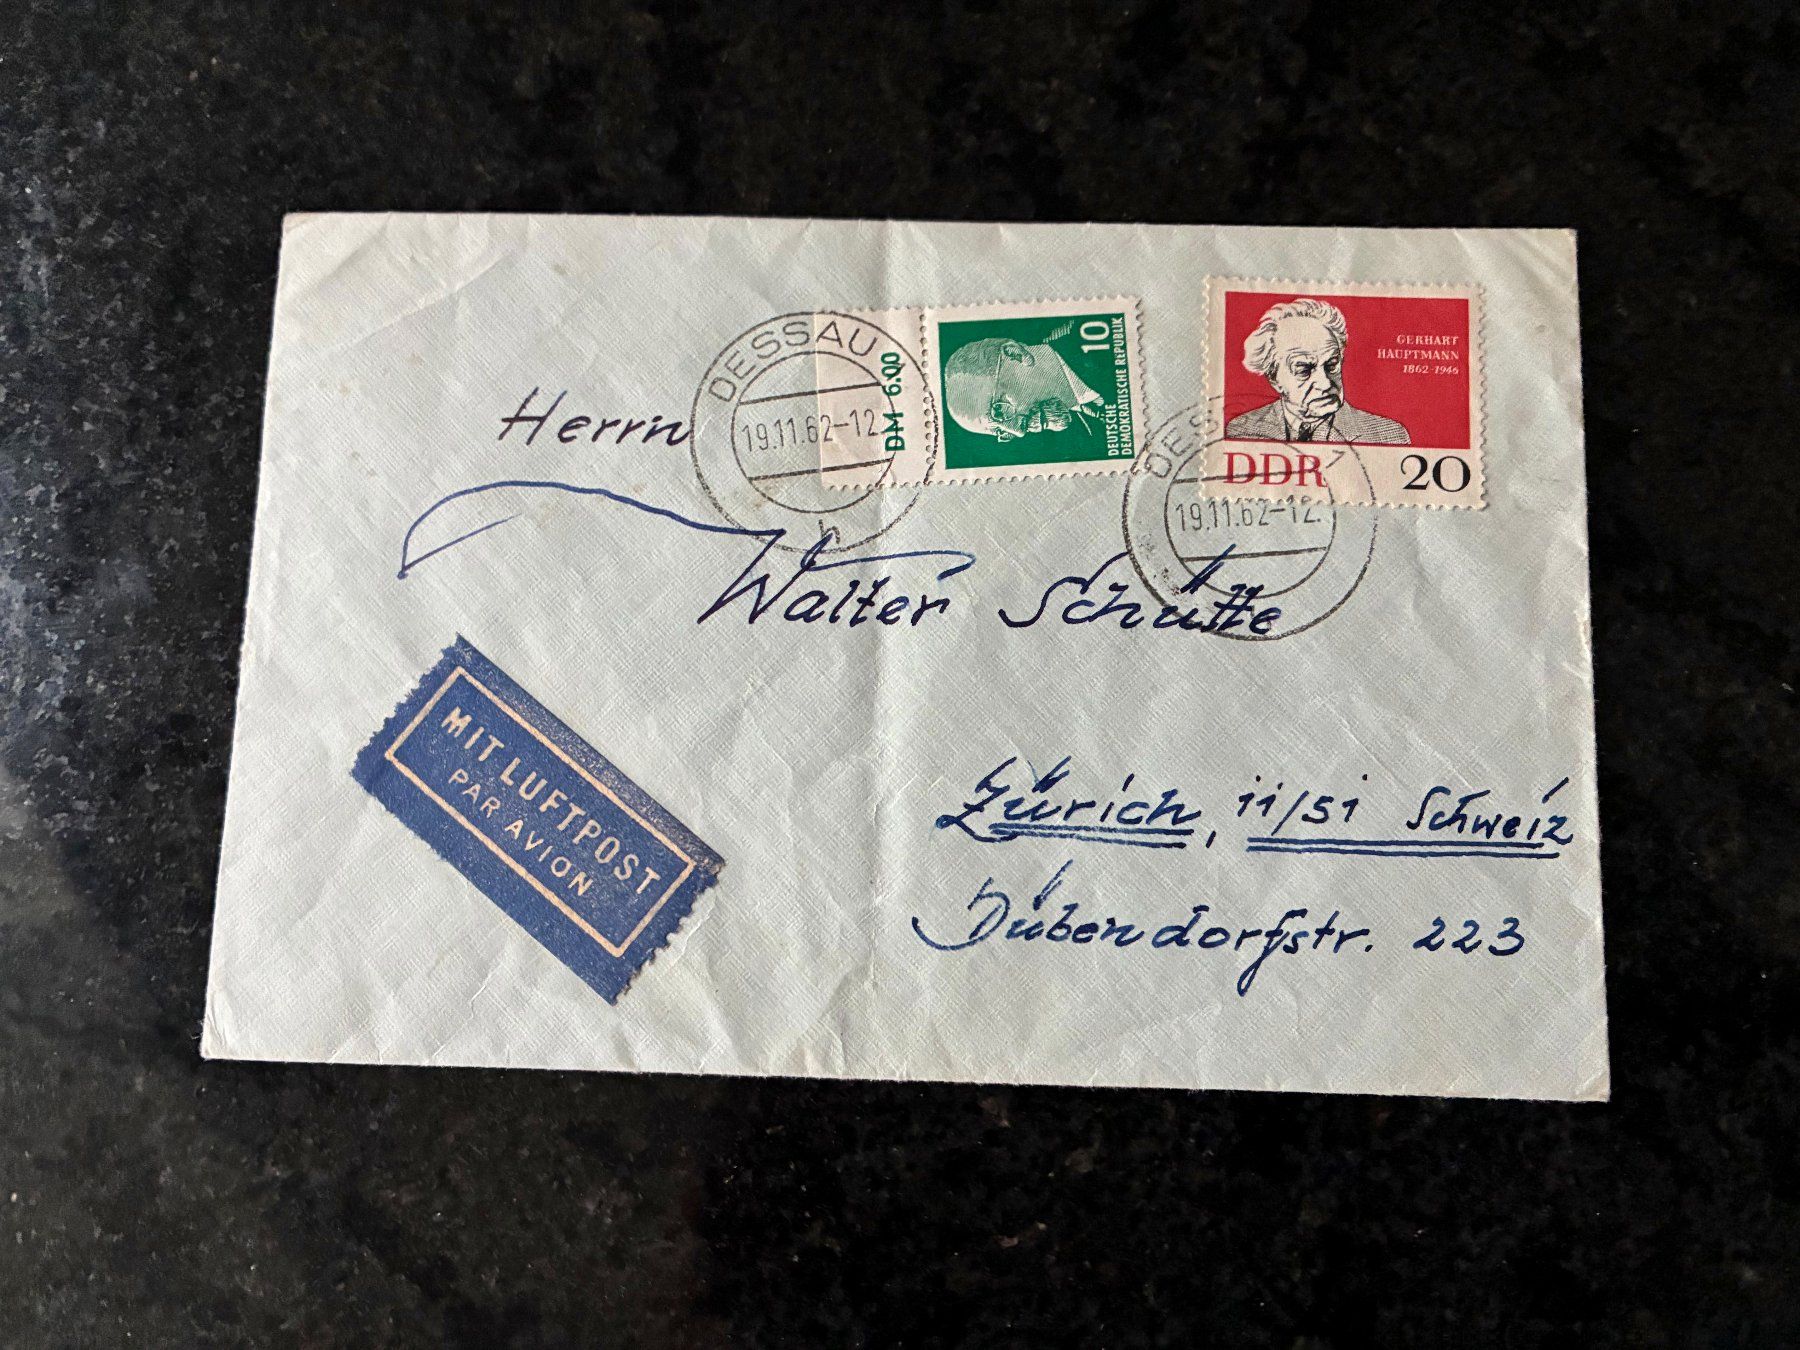 DESSAU
19.11.62-12.
h
DM 6.00
10
DEUTSCHE
DEMOKRATISCHE REPUBLIK
GERHART
HAUPTMANN
1862-1946
DDR
20
DES
19.11.62-12.
Herrn
Walter Schütte
MIT LUFTPOST
PAR AVION
Zürich, 11/51 Schweiz
Dübendorfstr. 223